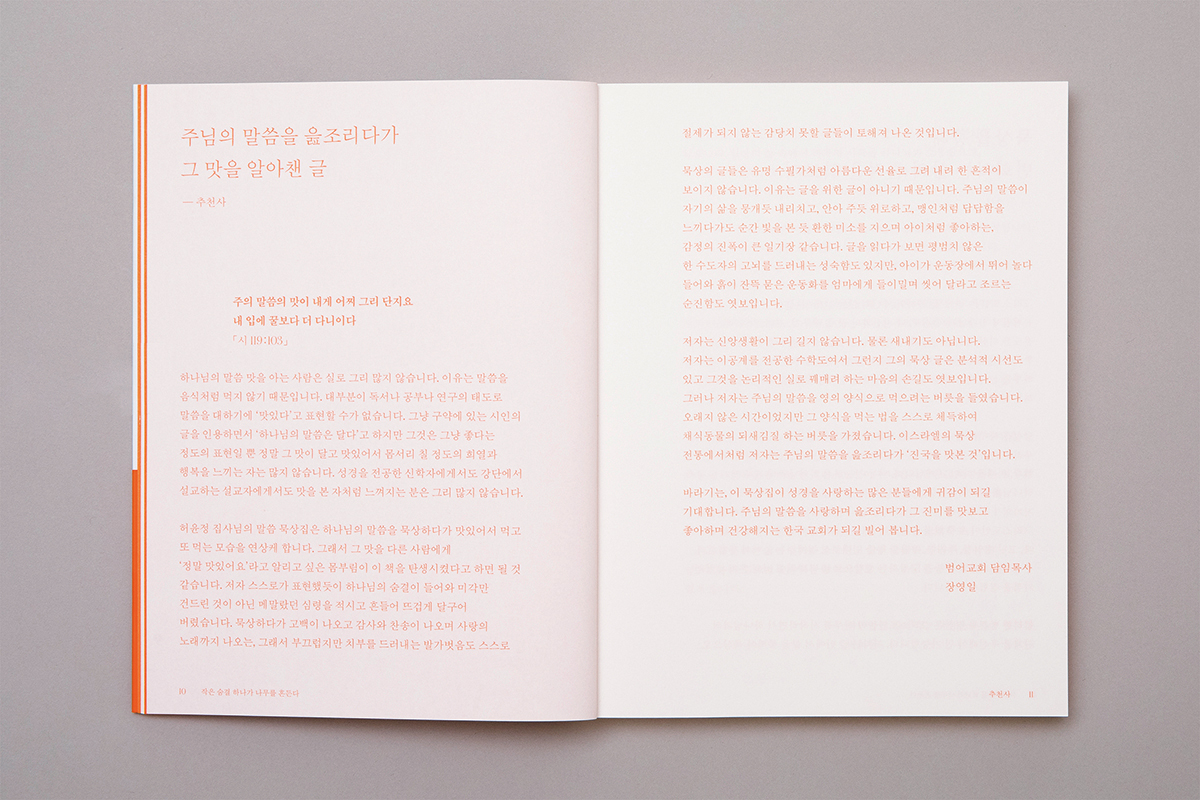 주님의 말씀을 읊조리다가
그 맛을 알아챈 글
— 추천사
주의 말씀의 맛이 내게 어찌 그리 단지요
내 입에 꿀보다 더 다니이다
「시 119:103」
하나님의 말씀 맛을 아는 사람은 실로 그리 많지 않습니다. 이유는 말씀을
음식처럼 먹지 않기 때문입니다. 대부분이 독서나 공부나 연구의 태도로
말씀을 대하기에 '맛있다'고 표현할 수가 없습니다. 그냥 구약에 있는 시인의
글을 인용하면서 '하나님의 말씀은 달다'고 하지만 그것은 그냥 좋다는
정도의 표현일 뿐 정말 그 맛이 달고 맛있어서 몸서리 칠 정도의 희열과
행복을 느끼는 자는 많지 않습니다. 성경을 전공한 신학자에게서도 강단에서
설교하는 설교자에게서도 맛을 본 자처럼 느껴지는 분은 그리 많지 않습니다.
허윤정 집사님의 말씀 묵상집은 하나님의 말씀을 묵상하다가 맛있어서 먹고
또 먹는 모습을 연상케 합니다. 그래서 그 맛을 다른 사람에게
'정말 맛있어요'라고 알리고 싶은 몸부림이 이 책을 탄생시켰다고 하면 될 것
같습니다. 저자 스스로가 표현했듯이 하나님의 숨결이 들어와 미각만
건드린 것이 아닌 메말랐던 심령을 적시고 흔들어 뜨겁게 달구어
버렸습니다. 묵상하다가 고백이 나오고 감사와 찬송이 나오며 사랑의
노래까지 나오는, 그래서 부끄럽지만 치부를 드러내는 발가벗음도 스스로
10 작은 숨결 하나가 나무를 흔든다
절제가 되지 않는 감당치 못할 글들이 토해져 나온 것입니다.
묵상의 글들은 유명 수필가처럼 아름다운 선율로 그려 내려 한 흔적이
보이지 않습니다. 이유는 글을 위한 글이 아니기 때문입니다. 주님의 말씀이
자기의 삶을 뭉개듯 내리치고, 안아 주듯 위로하고, 맹인처럼 답답함을
느끼다가도 순간 빛을 본 듯 환한 미소를 지으며 아이처럼 좋아하는,
감정의 진폭이 큰 일기장 같습니다. 글을 읽다가 보면 평범치 않은
한 수도자의 고뇌를 드러내는 성숙함도 있지만, 아이가 운동장에서 뛰어 놀다
들어와 흙이 잔뜩 묻은 운동화를 엄마에게 들이밀며 씻어 달라고 조르는
순진함도 엿보입니다.
저자는 신앙생활이 그리 길지 않습니다. 물론 새내기도 아닙니다.
저자는 이공계를 전공한 수학도여서 그런지 그의 묵상 글은 분석적 시선도
있고 그것을 논리적인 실로 꿰매려 하는 마음의 손길도 엿보입니다.
그러나 저자는 주님의 말씀을 영의 양식으로 먹으려는 버릇을 들였습니다.
오래지 않은 시간이었지만 그 양식을 먹는 법을 스스로 체득하여
채식동물의 되새김질 하는 버릇을 가졌습니다. 이스라엘의 묵상
전통에서처럼 저자는 주님의 말씀을 읊조리다가 '진국을 맛본 것'입니다.
바라기는, 이 묵상집이 성경을 사랑하는 많은 분들에게 귀감이 되길
기대합니다. 주님의 말씀을 사랑하며 읊조리다가 그 진미를 맛보고
좋아하며 건강해지는 한국 교회가 되길 빌어 봅니다.
범어교회 담임목사
장영일
추천사 11